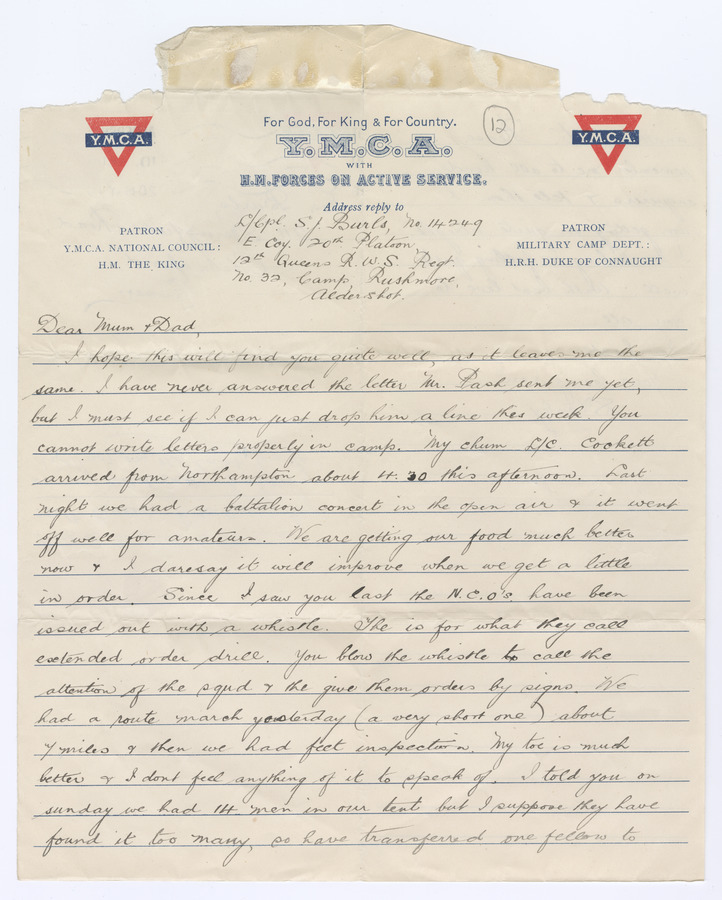 For God, For King & For Country.
12
Y.M.C.A.
Y.M.C.A.
Y.M.C.A.
WITH
H.M. FORCES ON ACTIVE SERVICE.
Address reply to
PATRON
Y.M.C.A. NATIONAL COUNCIL:
H.M. THE KING
L/Cpl. S. J. Burls, No. 14249
E Coy. 20th Platoon
12th Queens R.W.S. Regt.
No. 32, Camp, Rushmore,
Aldershot.
PATRON
MILITARY CAMP DEPT.:
H.R.H. DUKE OF CONNAUGHT
Dear Mum & Dad,
I hope this will find you quite well, as it leaves me the
same. I have never answered the letter Mr. Pash sent me yet,
but I must see if I can just drop him a line this week. You
cannot write letters properly in camp. My chum L/C. Cockett
arrived from Northampton about 4.30 this afternoon. Last
night we had a battalion concert in the open air & it went
off well for amateurs. We are getting our food much better
now & I daresay it will improve when we get a little
in order. Since I saw you last the N.C.O's. have been
issued out with a whistle. The is for what they call
extended order drill. You blow the whistle to call the
attention of the squd & the give them orders by signs. We
had a route march yesterday (a very short one) about
7 miles & then we had feet inspection. My toe is much
better & I dont feel anything of it to speak of. I told you on
sunday we had 14 men in our tent but I suppose they have
found it too many, so have transferred one fellow to